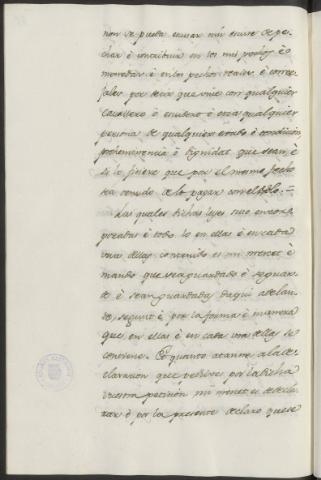 non se pueda escusar nin escuse de pe-
char é contribuir en los mis pedidos é
monedas é en los pechos reales é conce-
jales por decir que vive con qualquier
Cavallero ó escudero ó otra qualquier
persona de qualquier estado ó condicion,
prehemenencia ó dignidad que sean, é
si lo ficiere que por el mismo fecho
sea tenudo de lo pagar con el doblo.=
Las quales dichas leyes suso encorpo-
radas é todo lo en ellas é en cada
una dellas contenido es mi merced é
mando que sea guardado é se guar-
de é sean guardadas daqui adelan-
te, segunt é por la forma é manera
que en ellas é en cada una dellas se
contiene. É quanto atanne a la de-
claracion que pedistes por la dicha
vuestra peticion mi merced es de decla-
rar é por la presente declaro que se